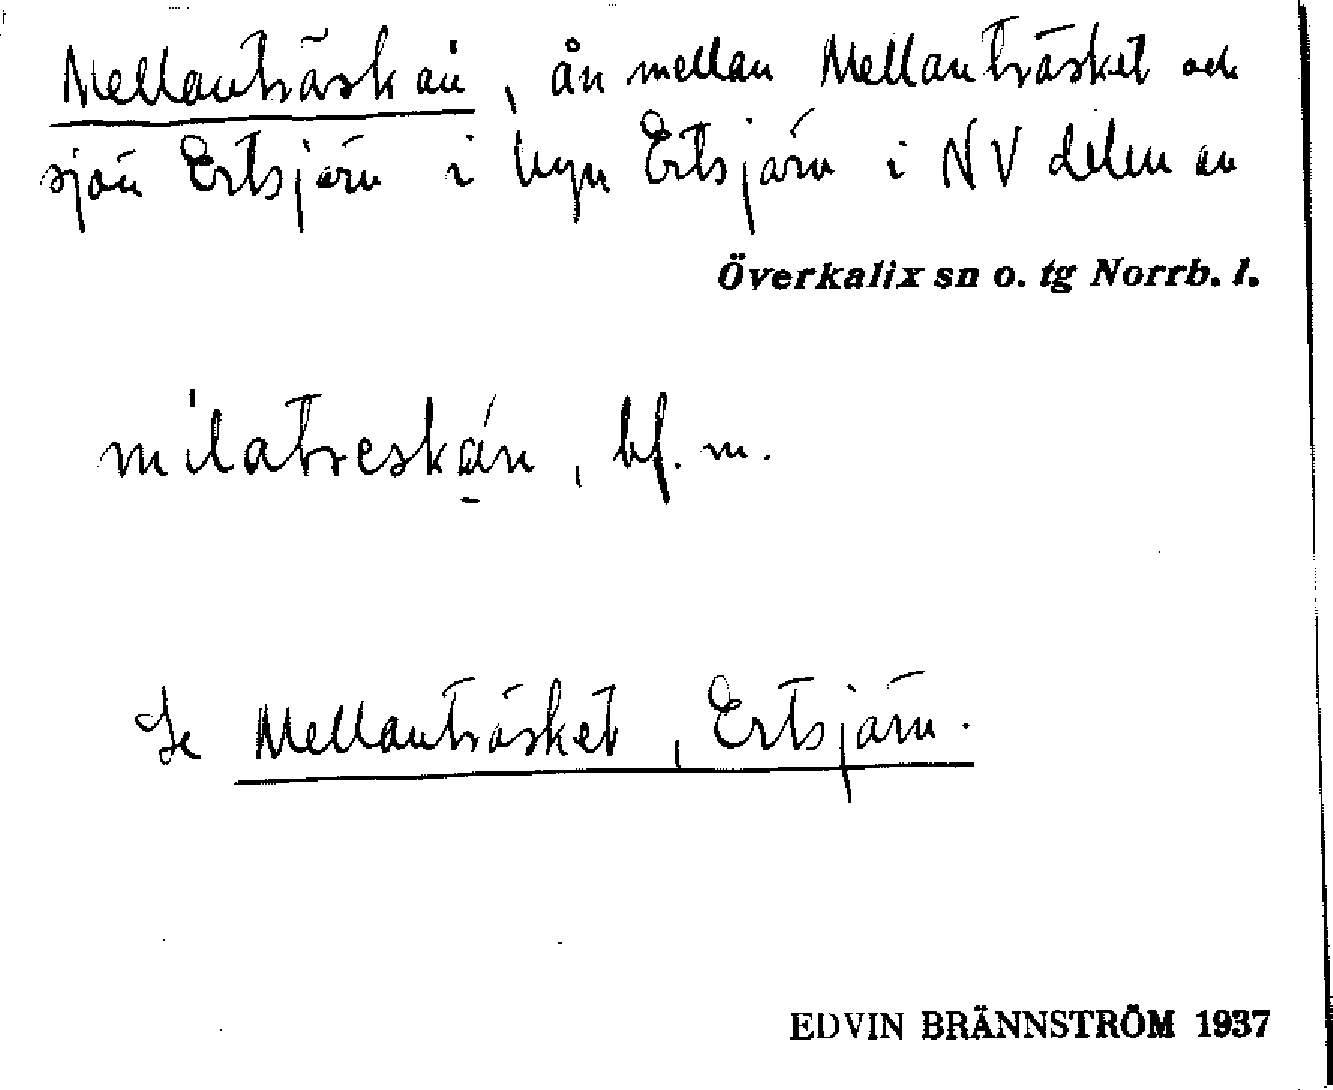 Mellanträskån, ån mellan Mellanträsket och
sjön Ertsjärn i byn Ertsjärn i NV delen av
Överkalix sn o. tg Norrb. l.
mi̍latreská̱n, bf. m.
Se Mellanträsket, Ertsjärn.
EDVIN BRÄNNSTRÖM 1937